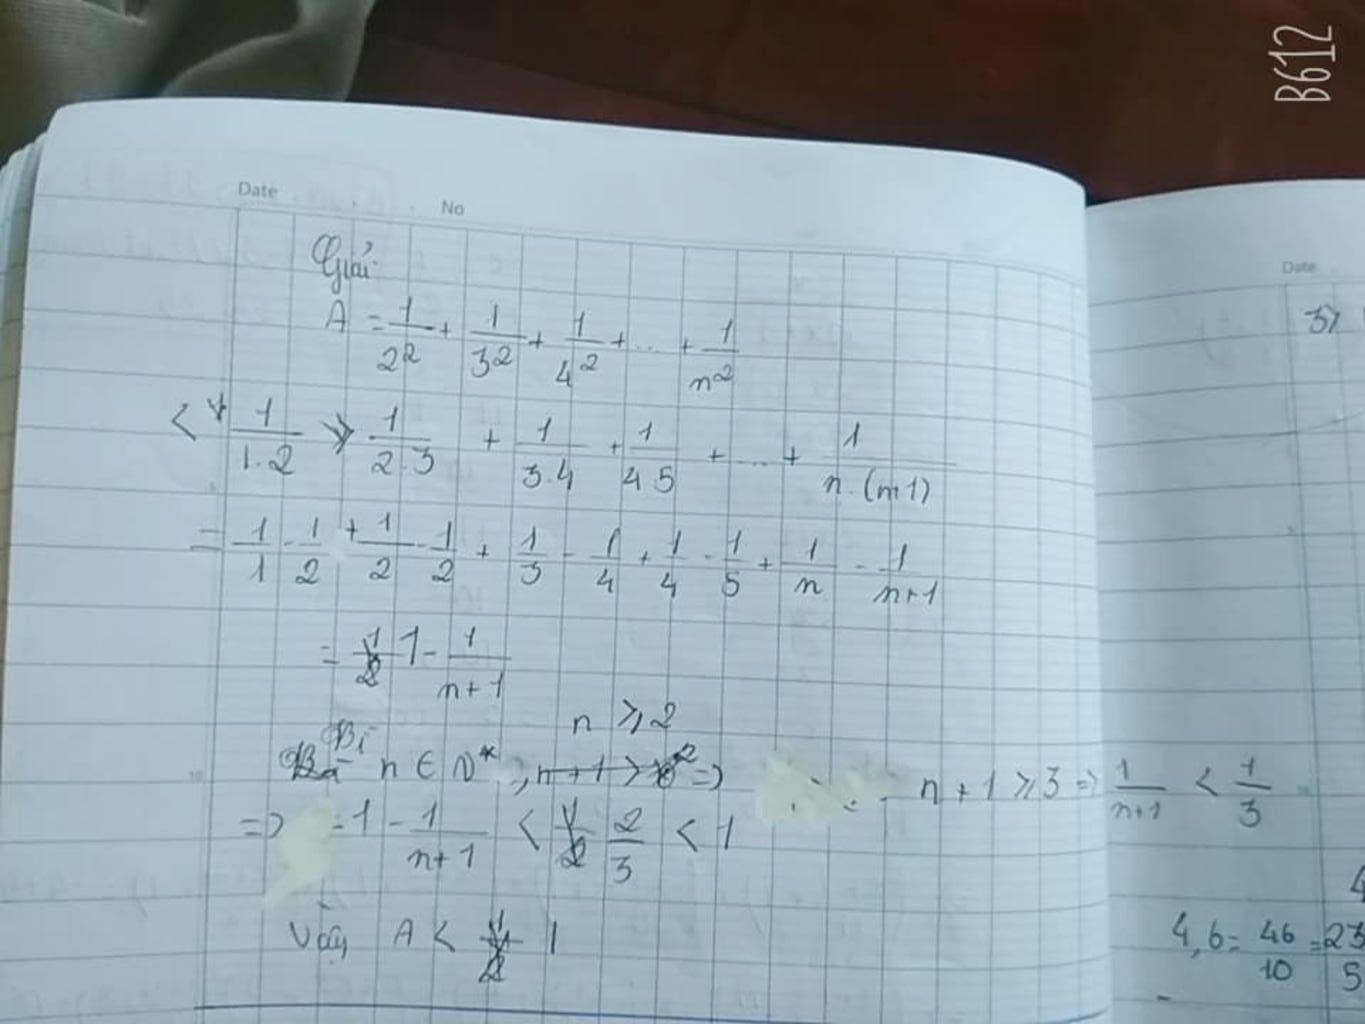 B612
Date No
Giải
A = 1/2² + 1/3² + 1/4² + ... + 1/n²
< 1/1.2 + 1/2.3 + 1/3.4 + 1/4.5 + ... + 1/n.(n+1)
= 1/1 - 1/2 + 1/2 - 1/2 + 1/3 - 1/4 + 1/4 - 1/5 + 1/n - 1/n+1
= 1 - 1/n+1
n ⩾ 2
Bì n ∈ N* , n+1 > 2 => n + 1 ⩾ 3 => 1/n+1 < 1/3
=> = 1 - 1/n+1 < 2/3 < 1
Vậy A < 1
Date
3)
4
4,6 = 46/10 = 23/5